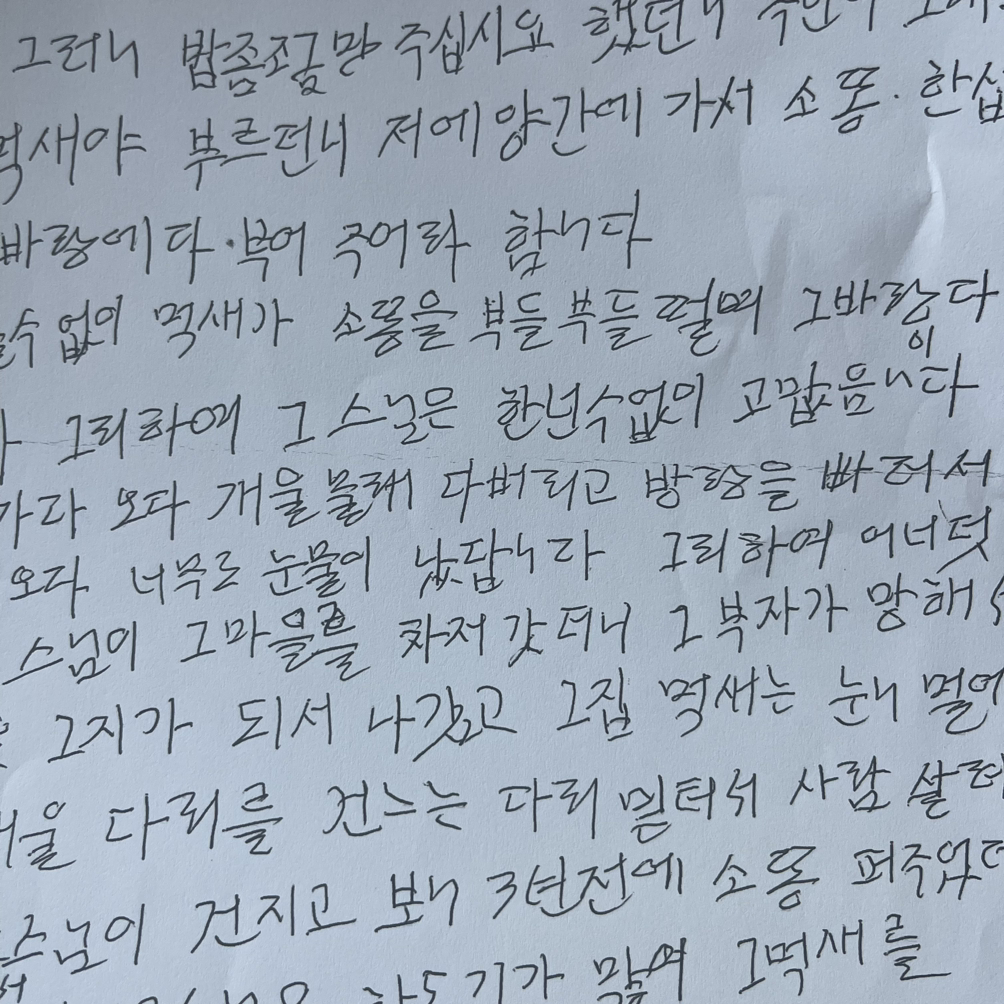 그러니 밥좀조금만 주십시요 했던니
먹새야 부르던니 저에양간에 가서 소똥. 한삽
바랑에다.부어 주어라 합니다
수없이 먹새가 소똥을 부들부들떨며 그바랑이다
그리하여 그 스님은 한년수없이 고맙음니다
가다 오다 개울물래 다버리고 방랑을 빠러서
오다 너무르 눈물이 났답니다 그리하여 어너덧
스님이 그마을를 차저갓더니 그 부자가 망해
그지가 되서 나갔고 그집 먹새는 눈니 멀어
다리를 건느는 다리 밑터서 사람 살려
스님이 건지고 보니 3년전에 소똥 퍼주었더
그먹새를